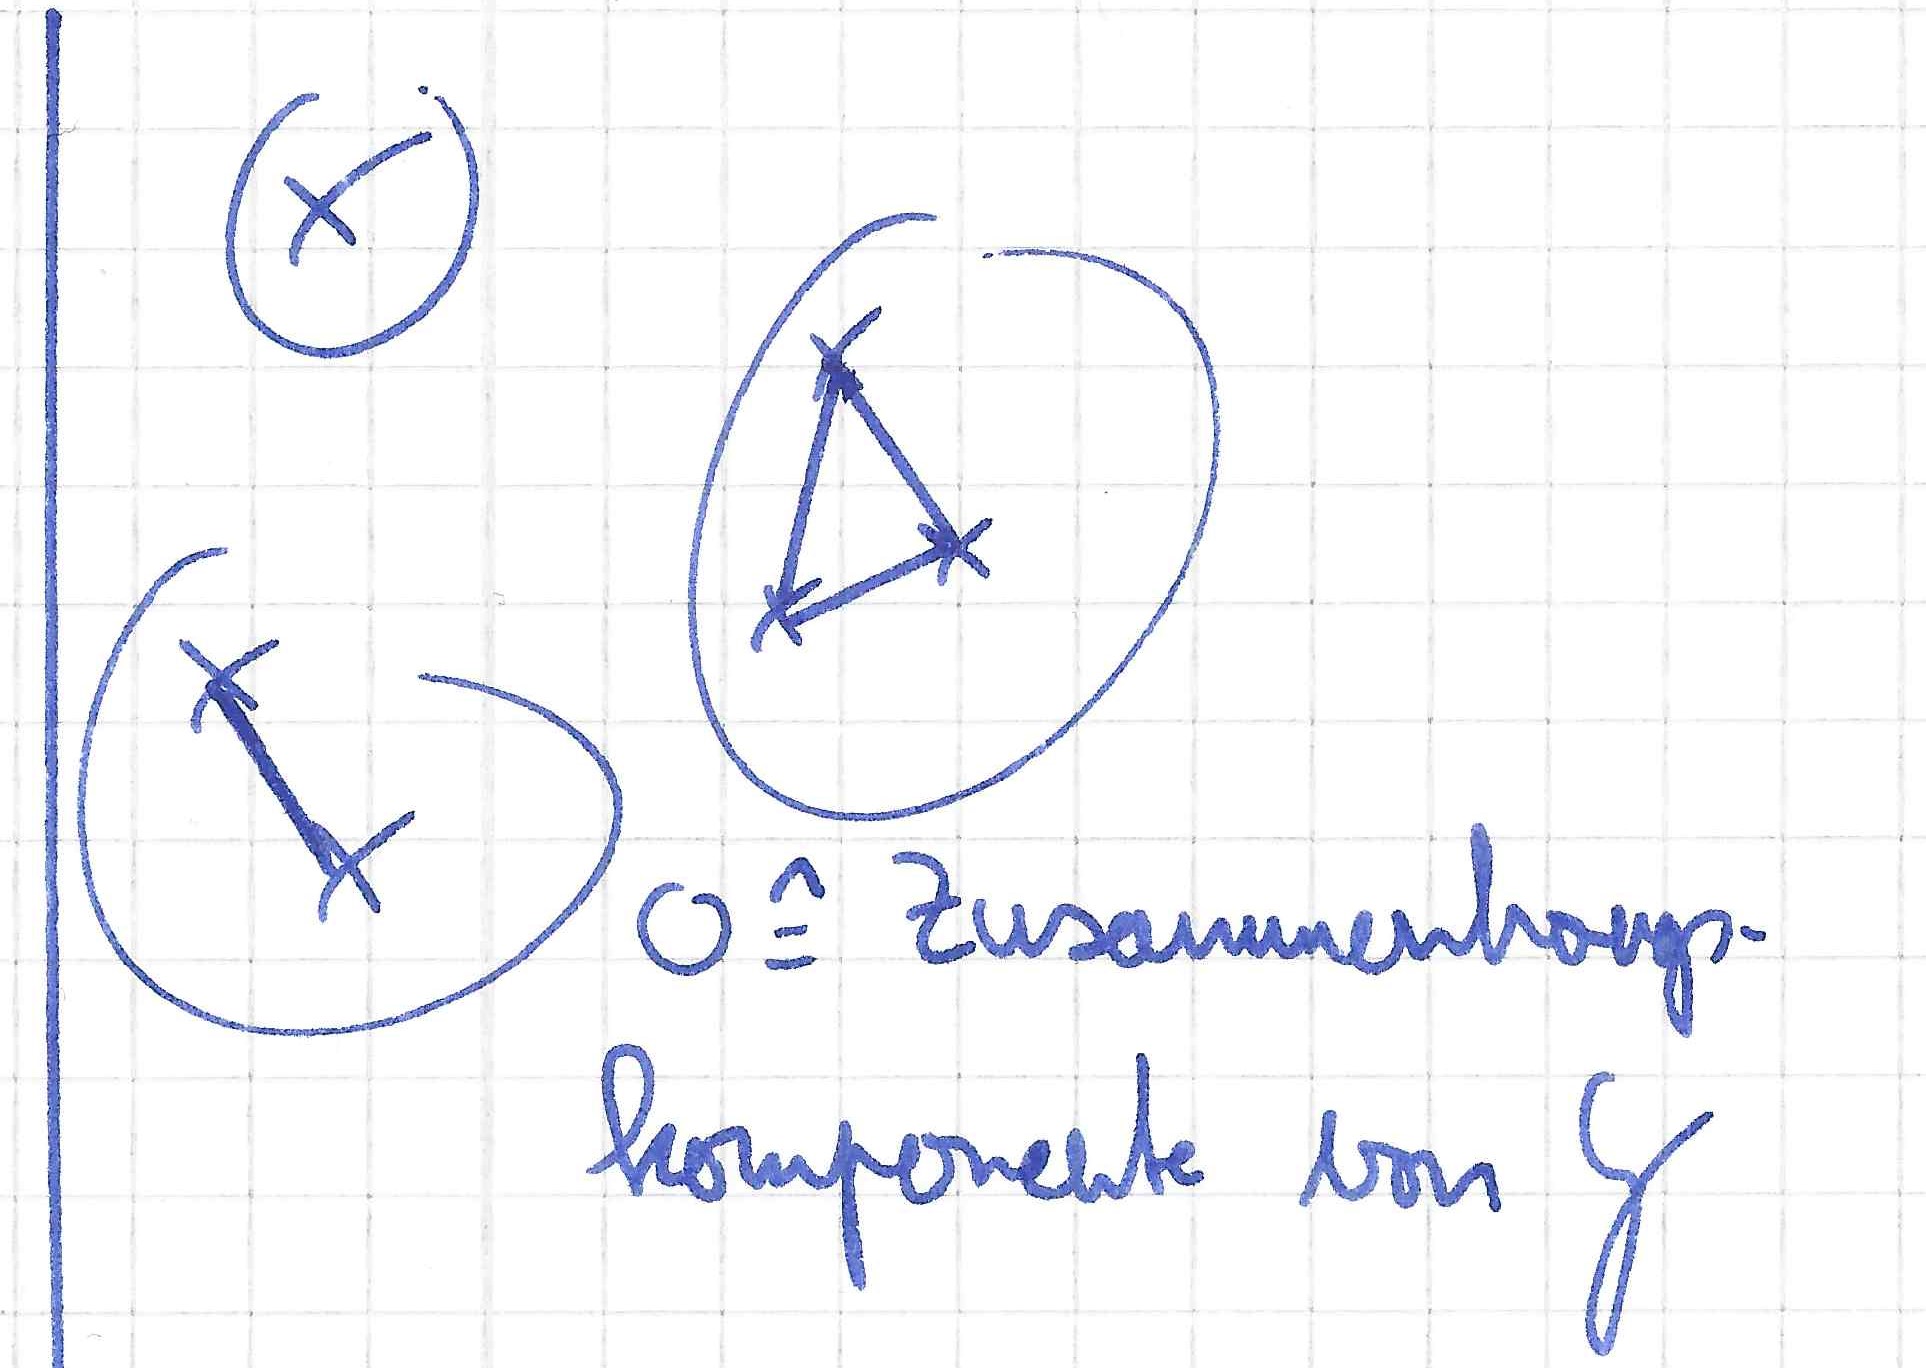 O ≙ Zusammenhangs-
komponente von G